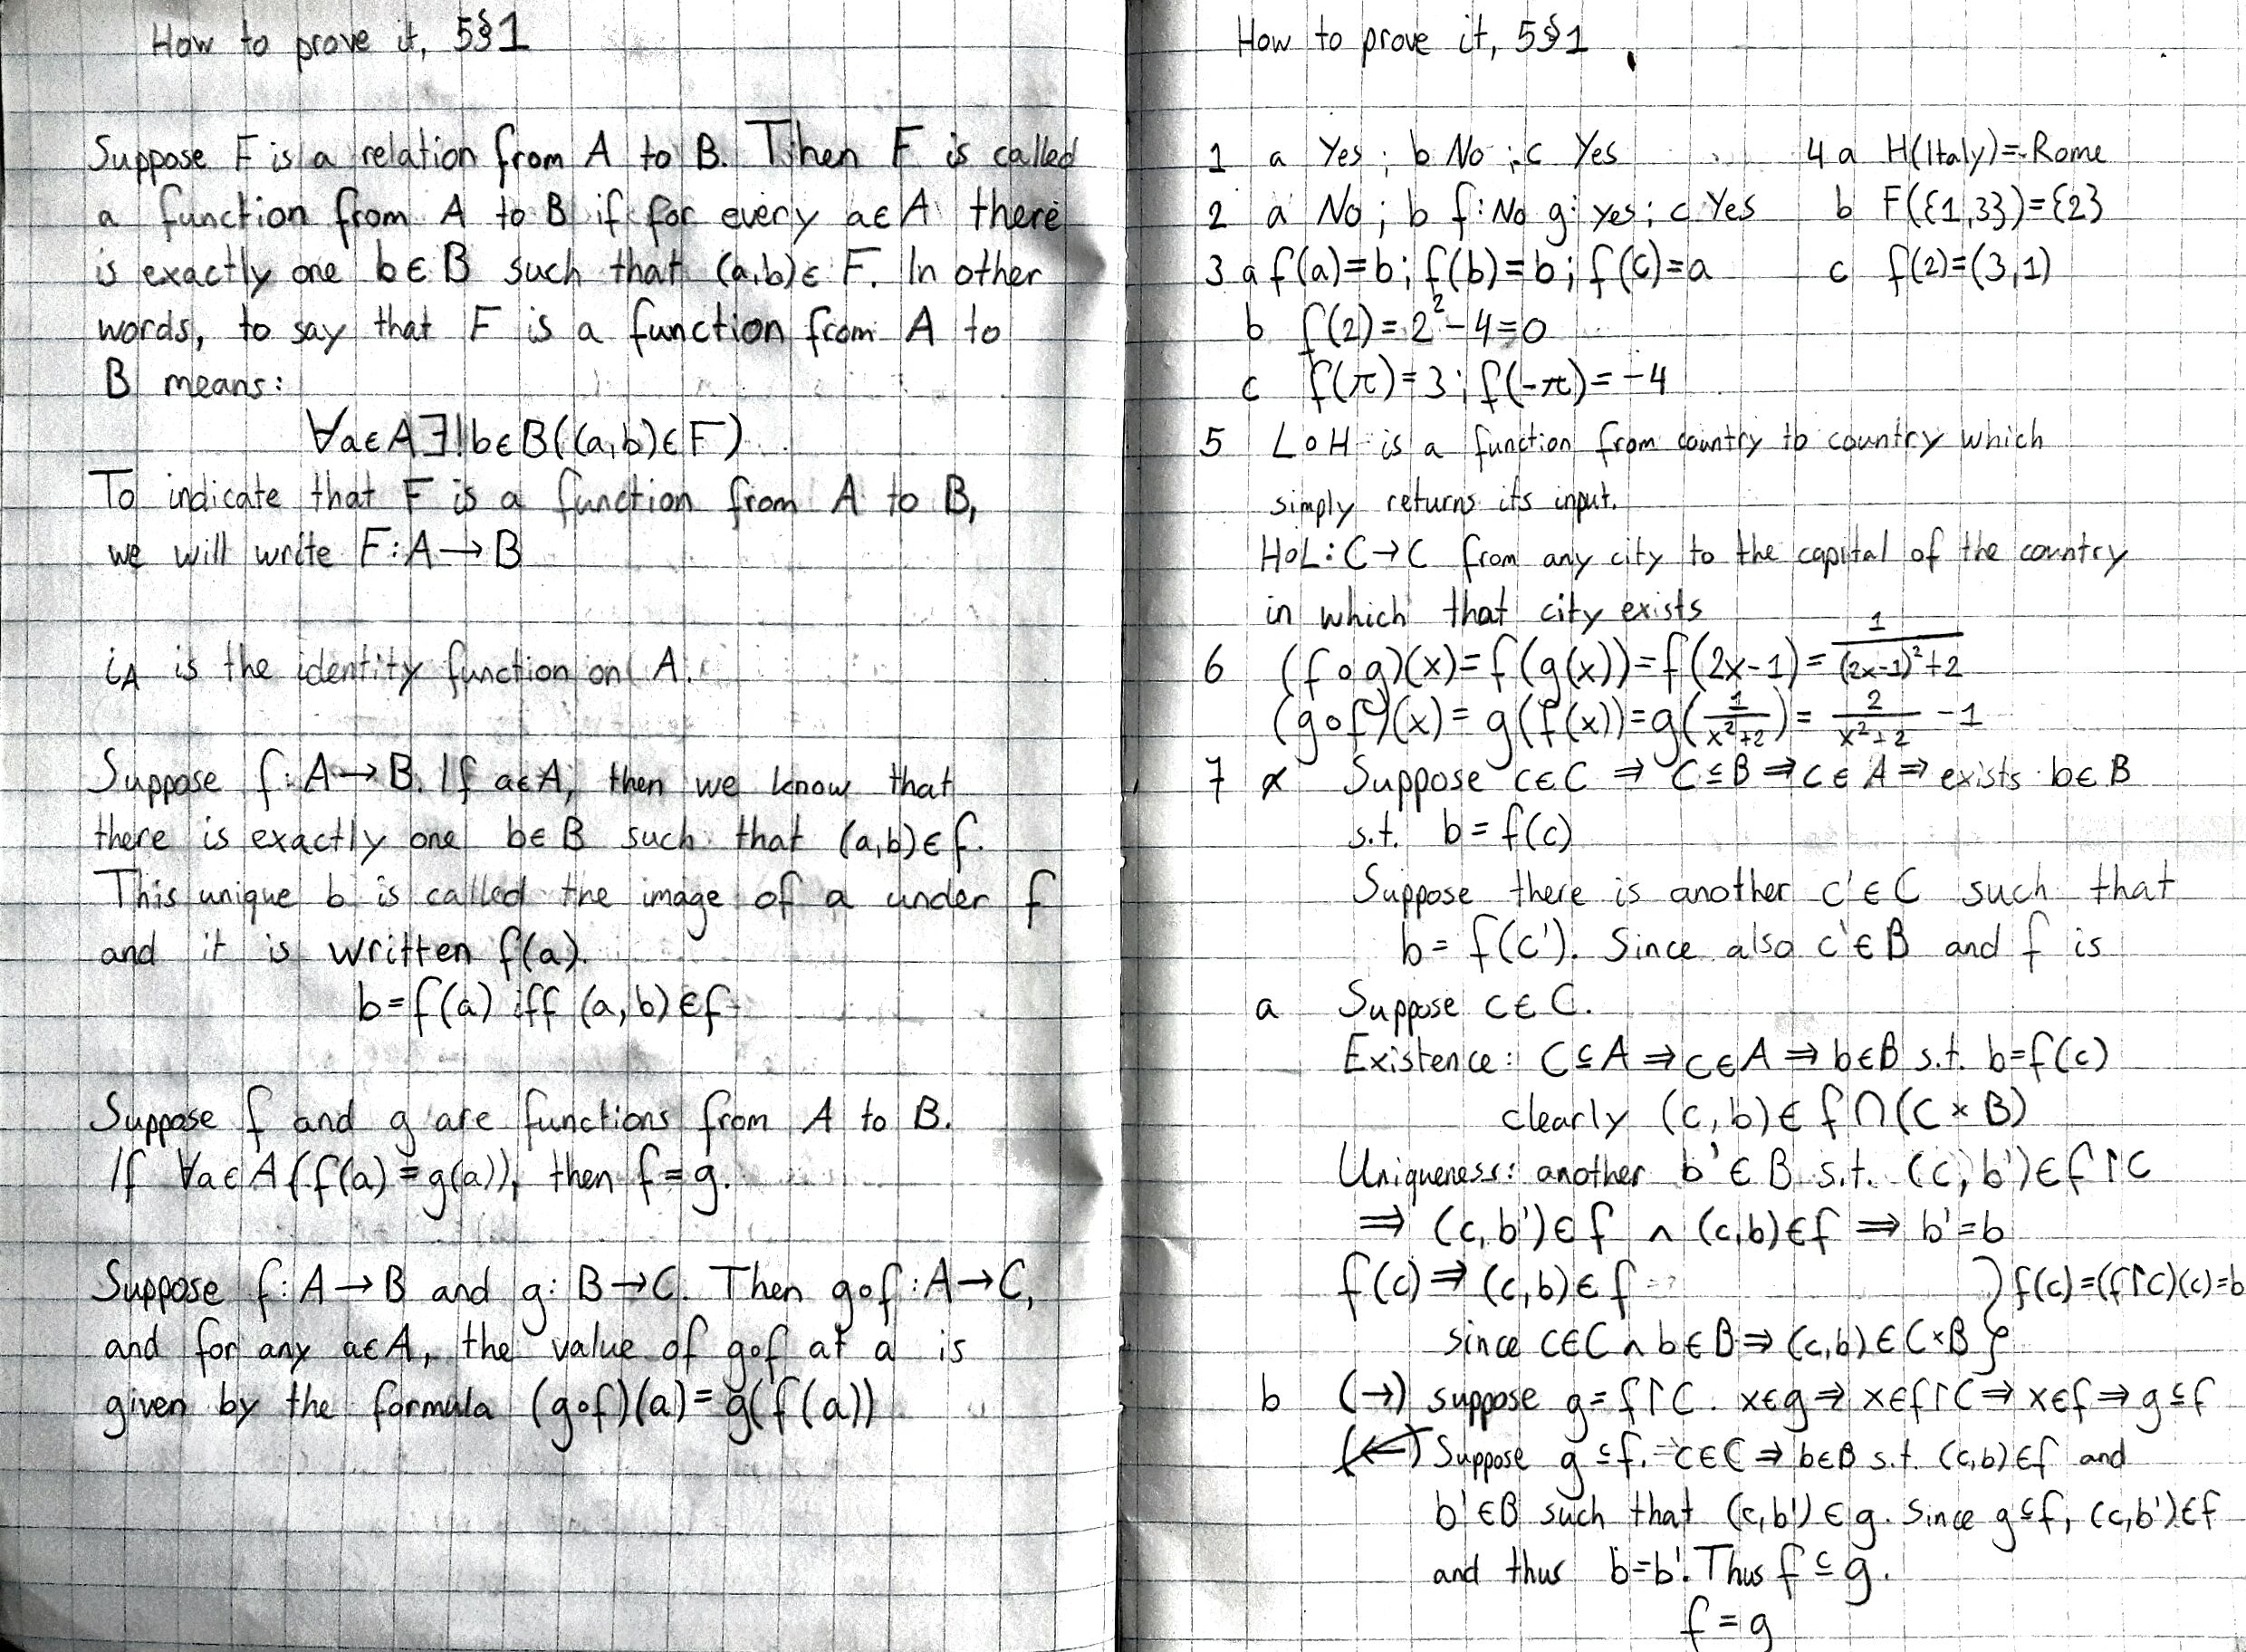 How to prove it, 5§1
Suppose F is a relation from A to B. Then F is called
a function from A to B if for every a∈A there
is exactly one b∈B such that (a,b)∈F. In other
words, to say that F is a function from A to
B means:
∀a∈A∃!b∈B((a,b)∈F)
To indicate that F is a function from A to B,
we will write F:A→B
i_A is the identity function on A.
Suppose f:A→B. If a∈A, then we know that
there is exactly one b∈B such that (a,b)∈f.
This unique b is called the image of a under f
and it is written f(a).
b=f(a) iff (a,b)∈f
Suppose f and g are functions from A to B.
If ∀a∈A(f(a)=g(a)), then f=g.
Suppose f:A→B and g:B→C. Then g∘f:A→C,
and for any a∈A, the value of g∘f at a is
given by the formula (g∘f)(a)=g(f(a))
How to prove it, 5§1
1 a Yes; b No; c Yes
2 a No; b f:No g:yes; c Yes
3 a f(a)=b; f(b)=b; f(c)=a
b f(2)=2²-4=0
c f(π)=3; f(-π)=-4
4 a H(Italy)=Rome
b F({1,3})={2}
c f(2)=(3,1)
5 L∘H is a function from country to country which
simply returns its input.
H∘L:C→C from any city to the capital of the country
in which that city exists
6 (f∘g)(x)=f(g(x))=f(2x-1)=1/((2x-1)²+2)
(g∘f)(x)=g(f(x))=g(1/(x²+2))=2/(x²+2)-1
7 a Suppose c∈C ⇒ C⊆B ⇒ c∈A ⇒ exists b∈B
s.t. b=f(c)
Suppose there is another c'∈C such that
b=f(c'). Since also c'∈B and f is
a Suppose c∈C.
Existence: C⊆A ⇒ c∈A ⇒ b∈B s.t. b=f(c)
clearly (c,b)∈f∩(C×B)
Uniqueness: another b'∈B s.t. (c,b')∈f↾C
⇒ (c,b')∈f ∧ (c,b)∈f ⇒ b'=b
f(c) ⇒ (c,b)∈f
since c∈C ∧ b∈B ⇒ (c,b)∈C×B } f(c)=(f↾C)(c)=b
b (→) suppose g=f↾C. x∈g ⇒ x∈f↾C ⇒ x∈f ⇒ g⊆f
(←) Suppose g⊆f. c∈C ⇒ b∈B s.t. (c,b)∈f and
b'∈B such that (c,b')∈g. Since g⊆f, (c,b')∈f
and thus b=b'. Thus f⊆g.
f=g